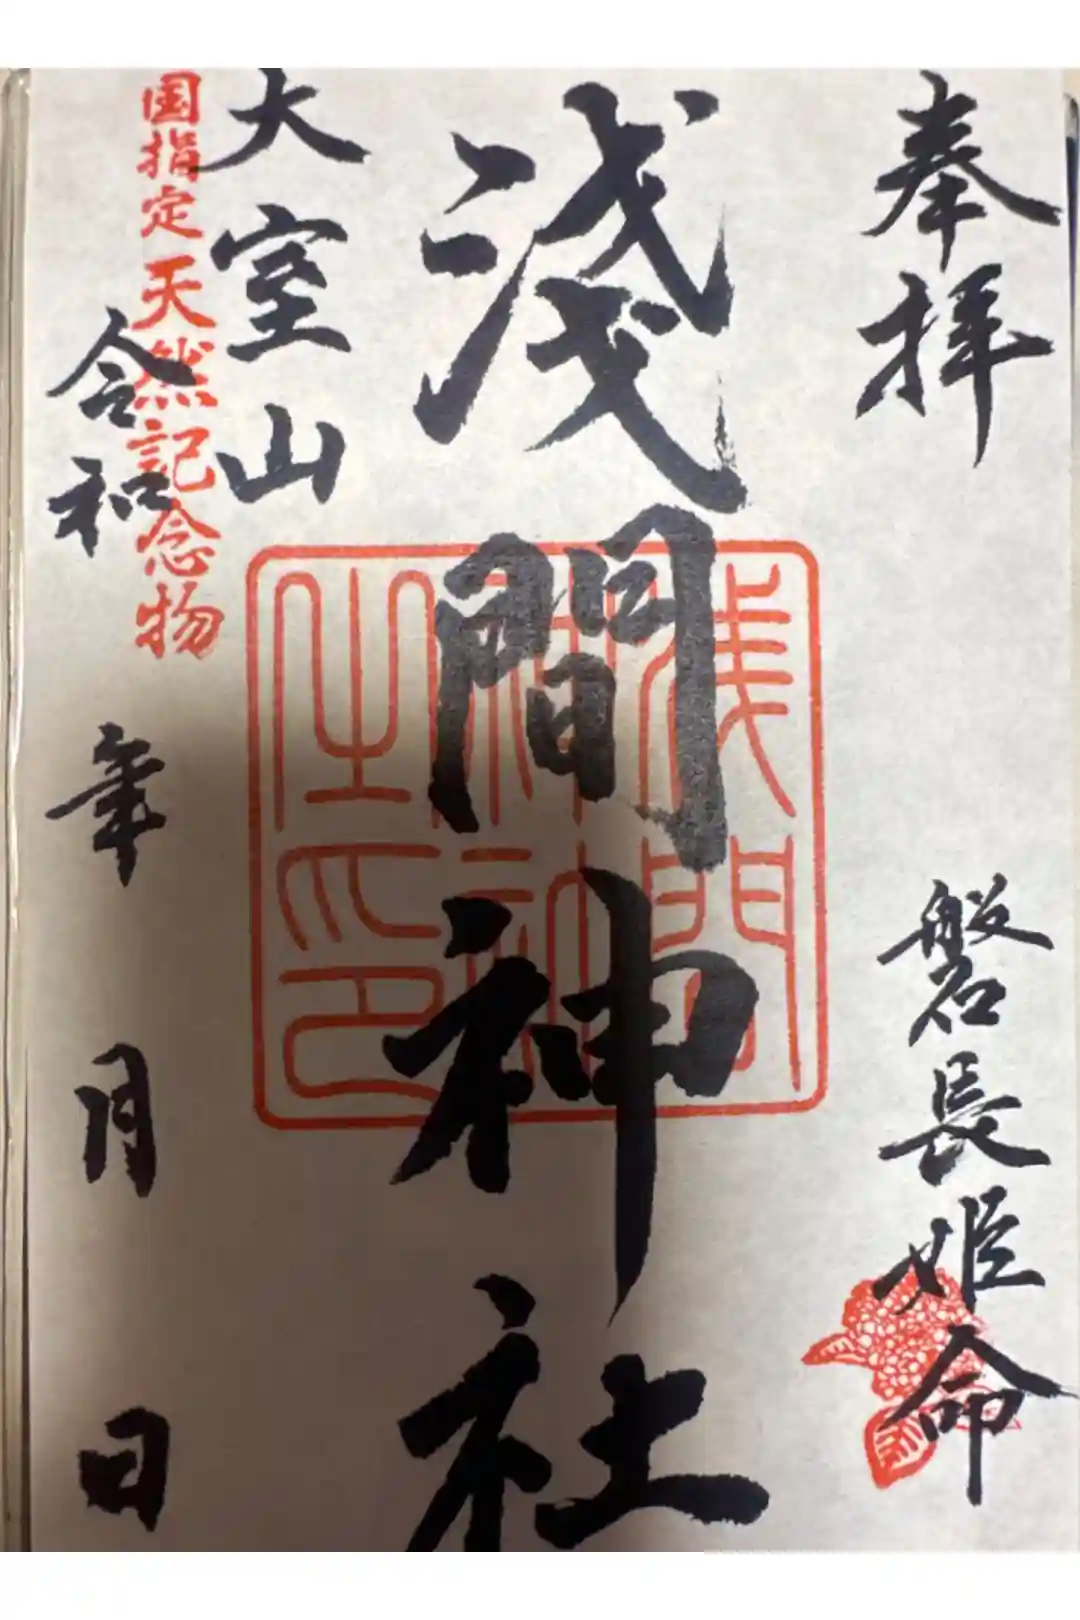 奉拝
磐長姫命
浅間神社
浅間
神社
之印
大室山
国指定天然記念物
令和 年 月 日